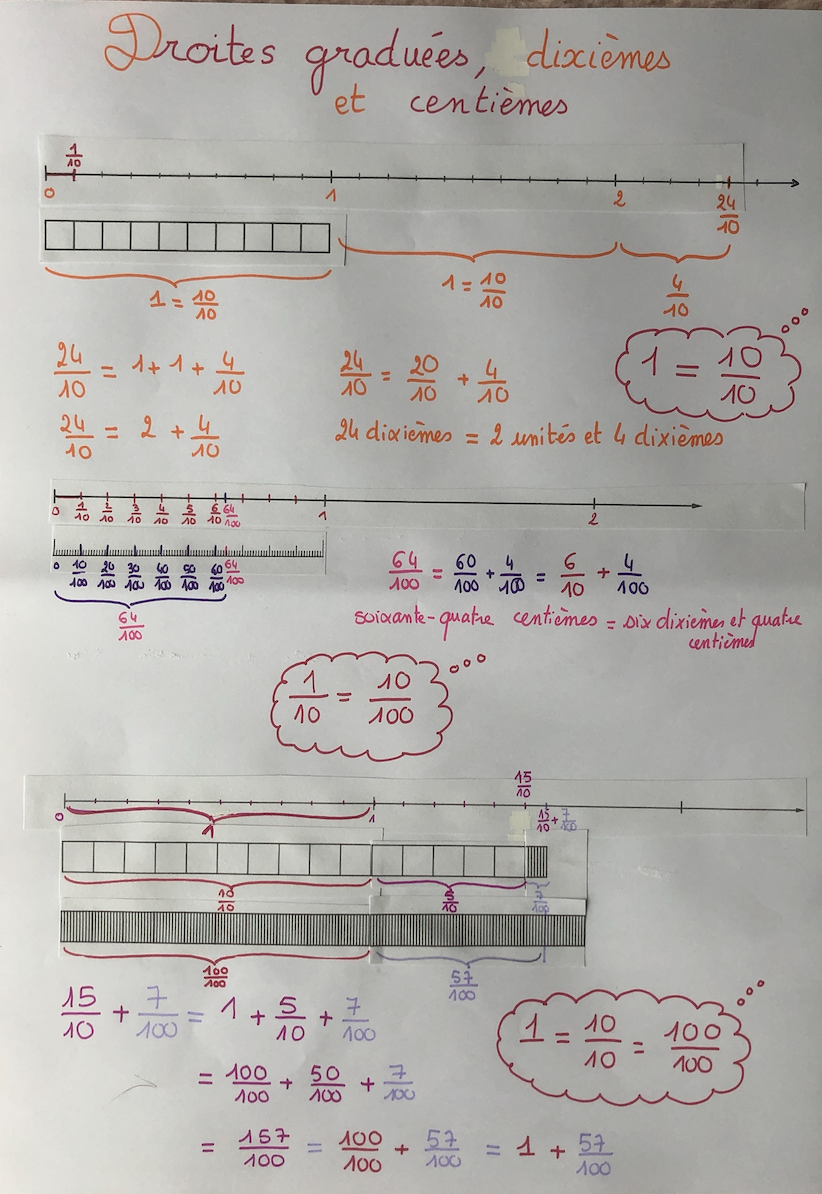 Droites graduées, dixièmes
et centièmes
1/10
0 1 2 24/10
1 = 10/10 1 = 10/10 4/10
24/10 = 1 + 1 + 4/10 24/10 = 20/10 + 4/10 1 = 10/10
24/10 = 2 + 4/10 24 dixièmes = 2 unités et 4 dixièmes
0 1/10 2/10 3/10 4/10 5/10 6/10 64/100 1 2
0 10/100 20/100 30/100 40/100 50/100 60/100 64/100
64/100
64/100 = 60/100 + 4/100 = 6/10 + 4/100
soixante-quatre centièmes = six dixièmes et quatre
centièmes
1/10 = 10/100
15/10
0 1 15/10 + 7/100
1
10/10 5/10 7/100
100/100 57/100
15/10 + 7/100 = 1 + 5/10 + 7/100
= 100/100 + 50/100 + 7/100
= 157/100 = 100/100 + 57/100 = 1 + 57/100
1 = 10/10 = 100/100